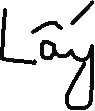 Lấy